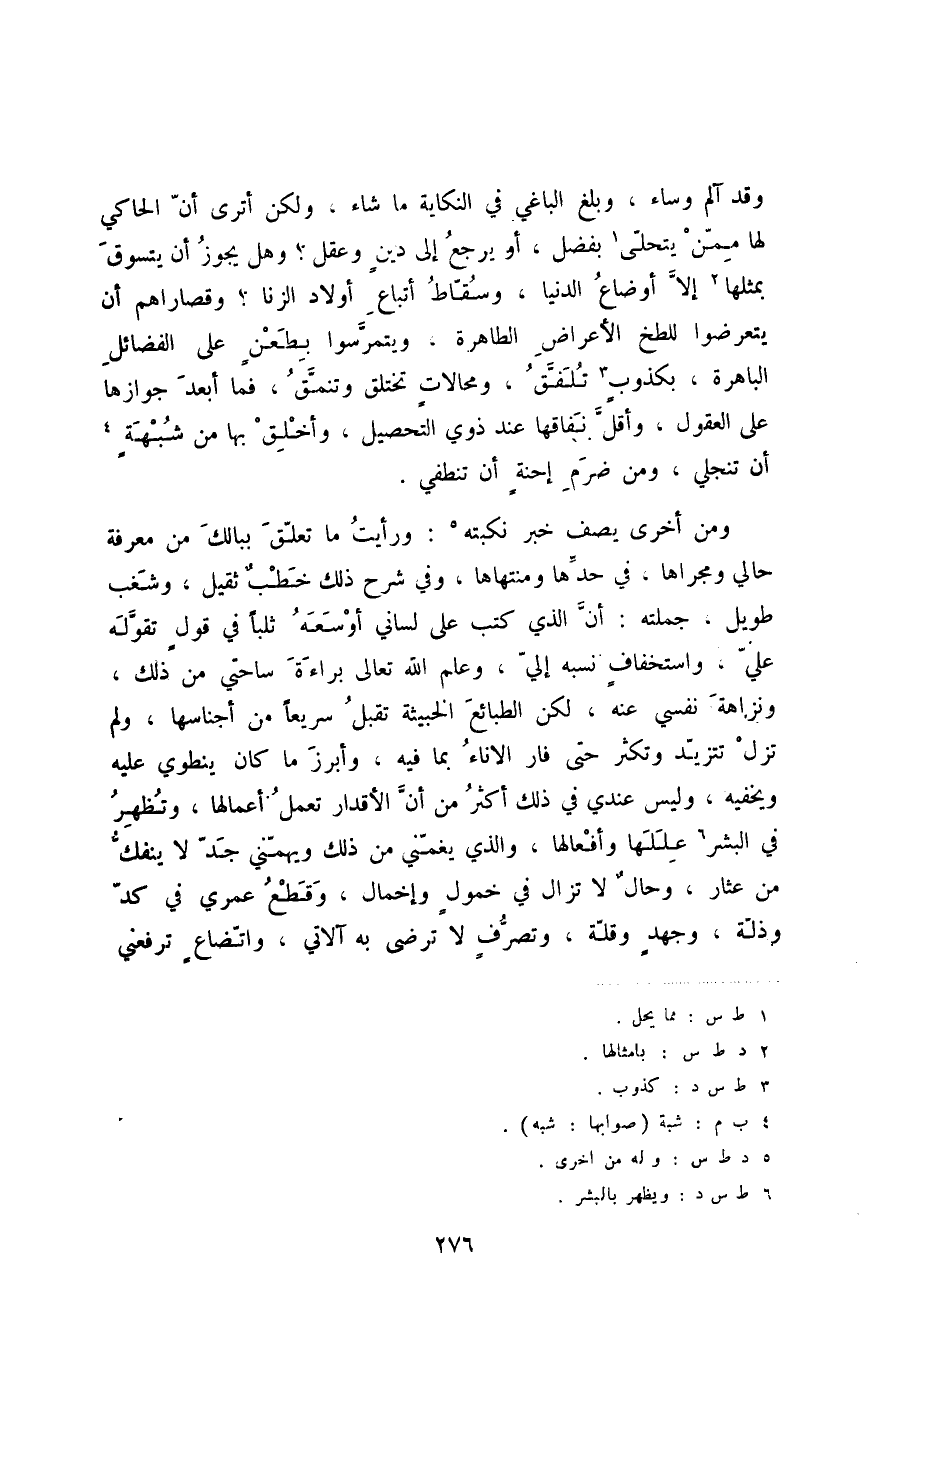 وقد آلم وساء ، وبلغ الباغي في النكاية ما شاء ، ولكن أترى أنّ الحاكي
لها مِمّنْ يتحلّى١ بفضل ، أو يرجعُ إلى دينٍ وعقل ؟ وهل يجوزُ أن يتسوقَ
بمثلها٢ إلاَّ أوضاعُ الدنيا ، وسُقّاطُ أتباعِ أولاد الزنا ؟ وقصاراهم أن
يتعرضوا للطخ الأعراضِ الطاهرة ، ويتمرَّسوا بِطَعْنٍ على الفضائلِ
الباهرة ، بكذوبٍ٣ تُلَفَّقُ ، ومحالاتٍ تختلق وتنمَّقُ ، فما أبعدَ جوازها
على العقول ، وأقلَّ نَفَاقها عند ذوي التحصيل ، وأخْلِقْ بها من شُبْهَةٍ٤
أن تنجلي ، ومن ضرَمِ إحنةٍ أن تنطفي .
ومن أخرى يصف خبر نكبته٥ : ورأيتُ ما تعلّقَ ببالكَ من معرفة
حالي ومجراها ، في حدِّها ومنتهاها ، وفي شرح ذلك خَطْبٌ ثقيل ، وشَغب
طويل ، جملته : أنَّ الذي كتب على لساني أوْسَعَهُ ثلباً في قولٍ تقوَّلَه
عليّ ، واستخفافٍ نسبه إليّ ، وعلم الله تعالى براءَةَ ساحتي من ذلك ،
ونزاهةَ نفسي عنه ، لكن الطبائعَ الخبيثة تقبلُ سريعاً من أجناسها ، ولم
تزلْ تتزيّد وتكثر حتّى فار الاناءُ بما فيه ، وأبرزَ ما كان ينطوي عليه
ويخفيه ، وليس عندي في ذلك أكثرُ من أنَّ الأقدار تعملُ أعمالها ، وتُظهِرُ
في البشر٦ عِلَلَها وأفْعالها ، والذي يغمّني من ذلك ويهمّني جَدّ لا ينفكُّ
من عثار ، وحالٌ لا تزال في خمولٍ وإخمال ، وَقَطْعُ عمري في كدّ
وذلّة ، وجهدٍ وقلّة ، وتصرُّفٍ لا ترضى به آلاتي ، واتّضاعٍ ترفعني
١ ط س : مما يحل .
٢ د ط س : بامثالها .
٣ ط س د : كذوب .
٤ ب م : شبة (صوابها : شبه) .
٥ د ط س : و له من اخرى .
٦ ط س د : ويظهر بالبشر .
٢٧٦